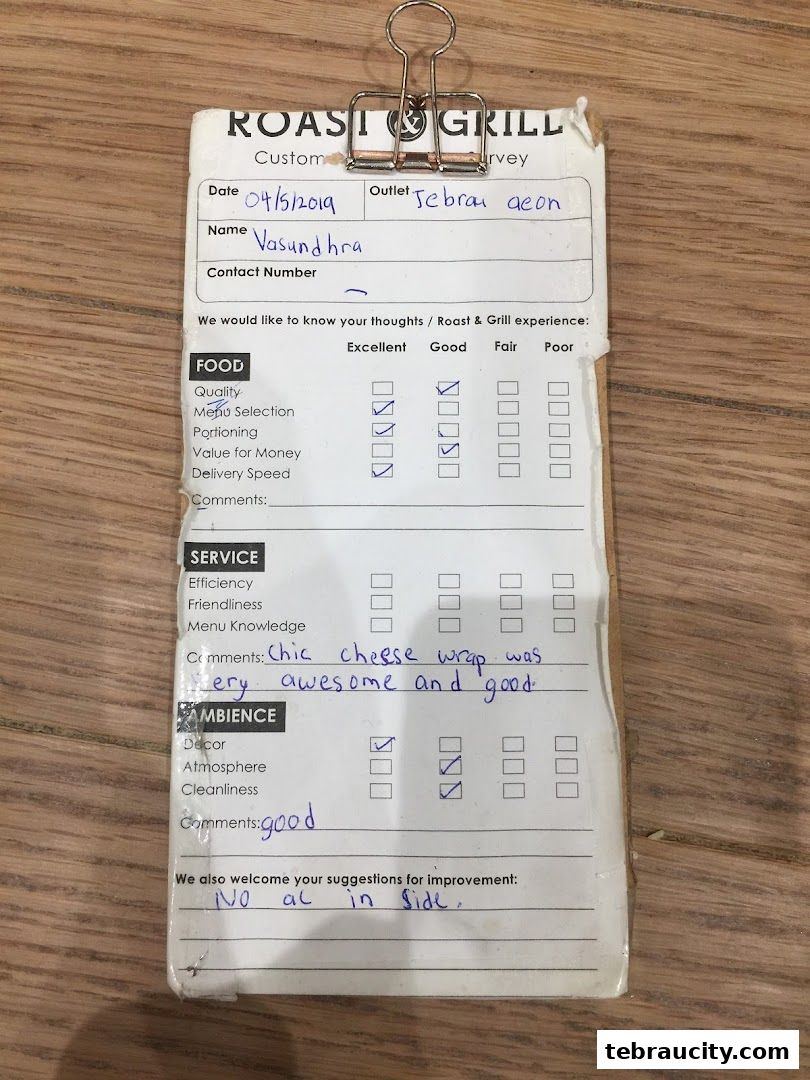 ROAST & GRILL
Custom rvey
Date 04/5/2019 Outlet Tebrau aeon
Name Vasundhra
Contact Number –
We would like to know your thoughts / Roast & Grill experience:
Excellent Good Fair Poor
FOOD
Quality
Menu Selection
Portioning
Value for Money
Delivery Speed
Comments:
SERVICE
Efficiency
Friendliness
Menu Knowledge
Comments: Chic cheese wrap was
very awesome and good.
AMBIENCE
Decor
Atmosphere
Cleanliness
Comments: good
We also welcome your suggestions for improvement:
NO ac in side.
tebraucity.com